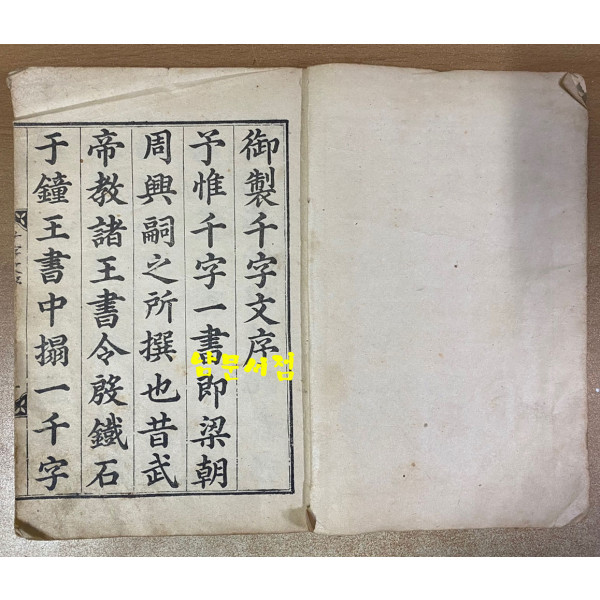 御製千字文序
予惟千字一書即梁朝
周興嗣之所撰也昔武
帝教諸王書令殷鐵石
于鐘王書中搨一千字
남문서점